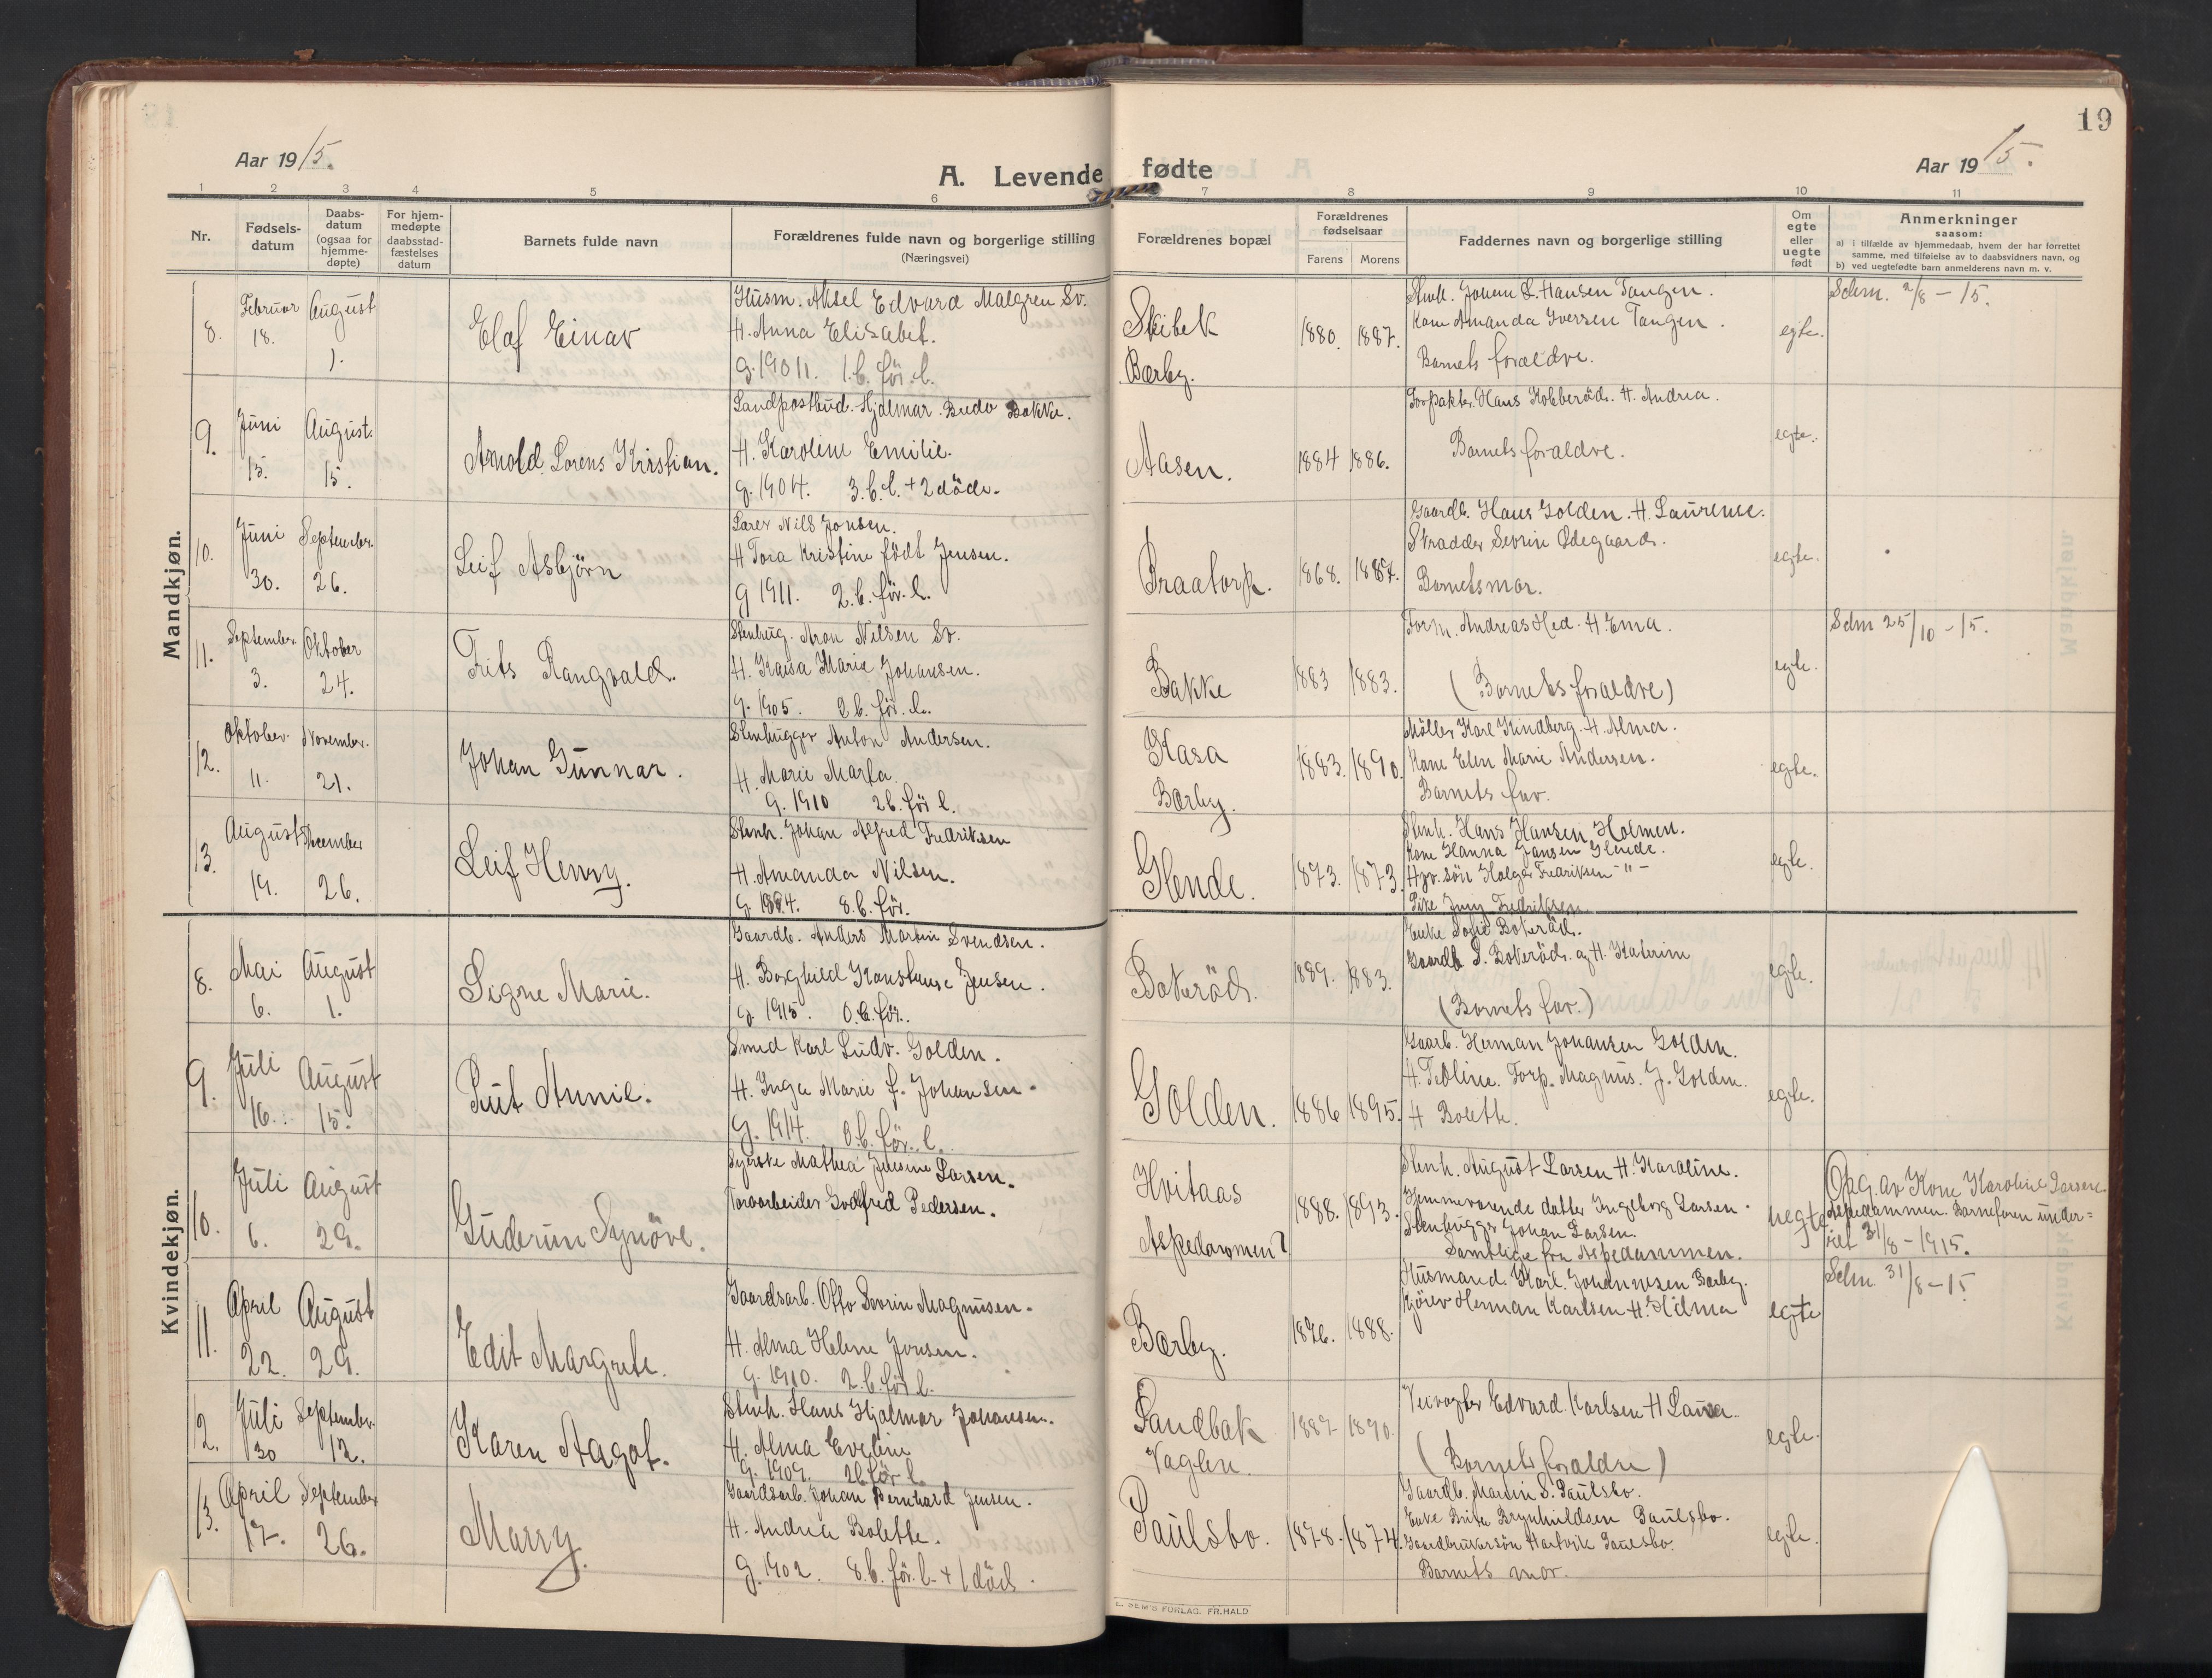 19
Aar 1915.
A. Levende fødte
Aar 1915.
1 2 3 4 5 6 7 8 9 10 11
Nr.
Fødsels-
datum
Daabs-
datum
(ogsaa for
hjemme-
døpte)
For hjem-
medøpte
daabsstad-
fæstelses
datum
Barnets fulde navn
Forældrenes fulde navn og borgerlige stilling
(Næringsvei)
Forældrenes bopæl
Forældrenes
fødselsaar
Farens Morens
Faddernes navn og borgerlige stilling
Om
egte
eller
uegte
født
Anmerkninger
saasom:
a) i tilfælde av hjemmedaab, hvem der har forrettet
samme, med tilføielse av to daabsvidners navn, og
b) ved uegtefødte barn anmelderens navn m. v.
Mandkjøn.
8.
Februar
18.
August
1.
Olaf Einar
Husm. Aksel Edvard Malgren Sv.
H. Anna Elisabet.
g. 19011. 1. b. før. l.
Skibek
Bærby.
1880. 1887.
Stenh. Johan L. Hansen Tangen.
Kone Amanda Iversen Tangen.
Barnets forældre.
egte.
Sdm. 2/8 – 15.
9.
Juni
15.
August.
15.
Arnold Lorens Kristian.
Landpostbud. Hjalmar Bakke.
H. Karoline Emilie.
g. 1904. 3. b. l. + 2 døde.
Aasen.
1884 1886.
Forpakter Hans Kobberød. H. Andrea.
Barnets forældre.
egte.
10.
Juni
30.
September.
26.
Leif Asbjørn
Lærer Nils Jonsen.
H Tora Kristine født Jensen.
g 1911. 2. b. før. l.
Braatorp.
1868. 1887.
Gaardb. Hans Golden. H. Laurense.
Skradder Sevrin Ødegaard.
Barnets mor.
egte.
11.
September.
3.
Oktober
24.
Frits Rangvald.
Stenhug. Aron Nilsen Sv.
H. Kaisa Marie Johansen.
g. 1905. 2 b. før. l.
Bakke
1883 1883.
Form. Andreas Hed. H. Ema.
(Barnets forældre)
egte.
Sdm 25/10 – 15.
12.
Oktober.
11.
November.
21.
Johan Gunnar.
Stenhugger Anton Andersen.
H. Marie Marta.
g. 1910 2 b. før l.
Kasa
Bærby.
1883. 1890.
Møller Karl Kindberg. H. Alma.
Kone Elen Marie Andersen.
Barnets far.
egte.
13.
August
19.
December
26.
Leif Henry.
Stenh. Johan Alfred Fredriksen
H. Amanda Nilsen.
g. 1894. 8. b. før.
Glende.
1873. 1873.
Stenh. Hans Hansen Holmen.
Kone Hanna Jansen Glende.
søn Holger Fredriksen – " –
Pike Fredriksen.
egte.
Kvindekjøn.
8.
Mai
6.
August
1.
Signe Marie.
Gaardb. Anders Martin Svendsen.
H. Borghild Konstanse Jensen.
g. 1915. 0. b. før.
Bokerød.
1889. 1883.
Enke Sofie Bokerød.
Gaardb S. Bokerød. og H. Katrine
(Barnets far.)
egte.
9.
Juli
16.
August
15.
Rut Annie.
Smed Karl Ludv. Golden.
H. Inga Marie f. Johansen.
g. 1914. 0. b. før. l.
Golden.
1886 1895.
Gaarb. Herman Johansen Golden.
H. Torp. Magnus. J. Golden.
H Bolette.
egte.
10.
Juli
6.
August
29.
Guderun Synøve.
Syerske Mathea Larsen.
Torvarbeider Godfred Pedersen.
Hvitaas
Aspedammen?
1888. 1893.
Stenh. August Larsen H. Karoline.
Hjemmeværende datter Ingeborg Larsen.
Stenhugger Johan Larsen.
Samtlige fra Aspedammen.
uegte
Opg. av Kone Karoline Larsen.
Aspedammen. Barnefaren under=
ret 31/8 – 1915.
11.
April
22.
August
29.
Edit Margrete.
Gaardsarb. Otto Sevrin Magnusen.
H. Alma Helene Jonsen.
g. 1910. 2. b. før l.
Bærby.
1886. 1888.
Husmand. Karl. Johannesen Bærby.
Kjører Herman Karlsen H. Hilma
egte
Sdm 31/8 – 15
12.
Juli
30
September.
12.
Karen Aagot.
Stenh. Hans Hjalmar Johansen.
H. Alma Eveline
g. 1909. 2 b. før l.
Sandbak
Vaglen.
1887 1890.
Veivogter Edvard Karlsen H Laura.
(Barnets forældre)
egte.
13.
April
17.
September
26.
Marry.
Gaardsarb. Johan Bernhard Jensen.
H. Andrea Bolette.
g. 1902. 8. b. før. l. + 1 død.
Paulsbo.
1878. 1874.
Gaardb. Martin S. Paulsbo.
Enke Brita Brynhildsen Paulsbo.
Gaardbrukersøn Hartvik Paulsbo.
Barnets mor.
egte.
SEM'S FORLAG. FR.HALD